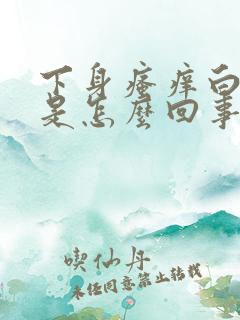 下身瘙痒白
是怎麼回事
喫仙丹
未经同意禁止转载